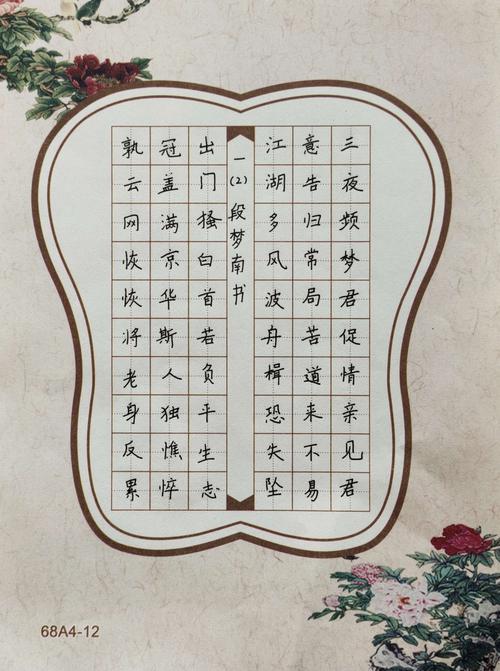 三夜频梦君促情亲见君
意告归常局苦道来不易
江湖多风波舟楫恐失坠
一(2)段梦南书
出门搔白首若负平生志
冠盖满京华斯人独憔悴
孰云网恢恢将老身反累
68A4-12